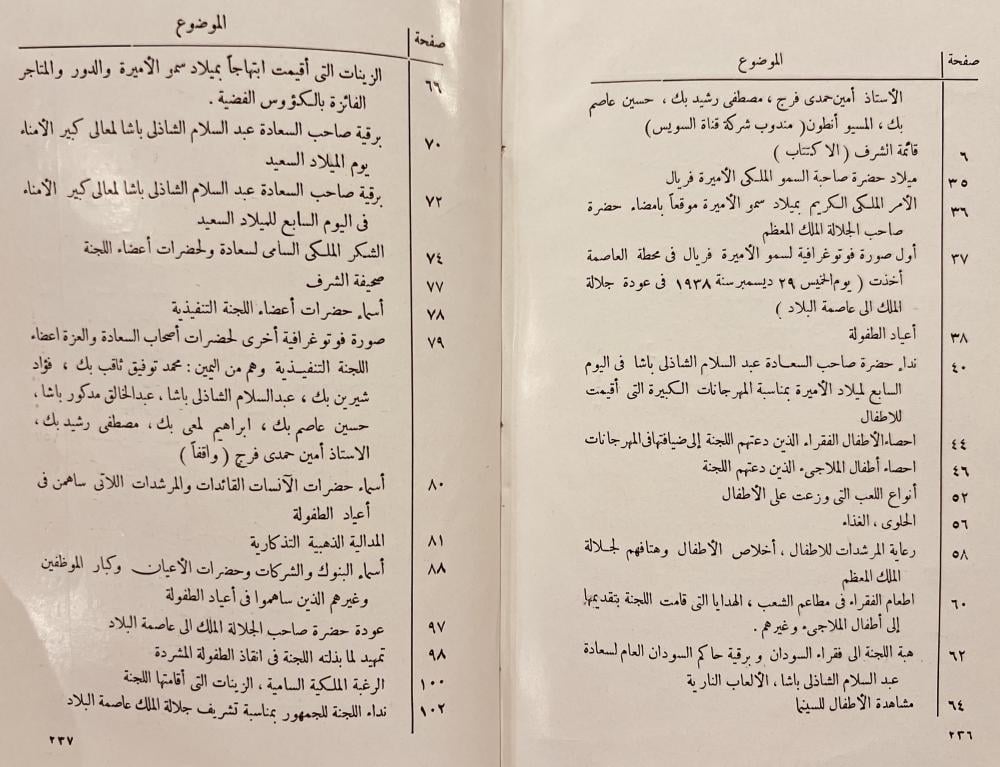 صفحة الموضوع
الأستاذ أمين حمدى فرج ، مصطفى رشيد بك ، حسين عاصم
بك ، المسيو أنطون ( مندوب شركة قناة السويس )
٦ قائمة الشرف ( الاكتتاب )
٣٥ ميلاد حضرة صاحبة السمو الملكى الأميرة فريال
٣٦ الأمر الملكى الكريم بميلاد سمو الأميرة موقعاً بامضاء حضرة
صاحب الجلالة الملك المعظم
٣٧ أول صورة فوتوغرافية لسمو الأميرة فريال فى محطة العاصمة
أخذت ( يوم الخميس ٢٩ ديسمبر سنة ١٩٣٨ فى عودة جلالة
الملك الى عاصمة البلاد )
٣٨ أعياد الطفولة
٤٠ نداء حضرة صاحب السعادة عبد السلام الشاذلى باشا فى اليوم
السابع لميلاد الأميرة بمناسبة المهرجانات الكبيرة التى أقيمت
للاطفال
٤٤ احصاء الأطفال الفقراء الذين دعتهم اللجنة إلى ضيافتها فى المهرجانات
٤٦ احصاء أطفال الملاجىء الذين دعتهم اللجنة
٥٢ أنواع اللعب التى وزعت على الأطفال
٥٦ الحلوى ، الغذاء
٥٨ رعاية المرشدات للاطفال ، أخلاص الأطفال وهتافهم لجلالة
الملك المعظم
٦٠ اطعام الفقراء فى مطاعم الشعب ، الهدايا التى قامت اللجنة بتقديمها
إلى أطفال الملاجىء وغيرهم .
٦٢ هبة اللجنة الى فقراء السودان و برقية حاكم السودان العام لسعادة
عبد السلام الشاذلى باشا ، الألعاب النارية
٦٤ مشاهدة الأطفال للسينما
٢٣٦
صفحة الموضوع
٦٦ الزينات التى أقيمت ابتهاجاً بميلاد سمو الأميرة والدور والمتاجر
الفائزة بالكؤوس الفضية .
٧٠ برقية صاحب السعادة عبد السلام الشاذلى باشا لمعالى كبير الأمناء
يوم الميلاد السعيد
٧٢ برقية صاحب السعادة عبد السلام الشاذلى باشا لمعالى كبير الأمناء
فى اليوم السابع للميلاد السعيد
٧٤ الشكر الملكى السامى لسعادة ولحضرات أعضاء اللجنة
٧٧ صحيفة الشرف
٧٨ أسماء حضرات أعضاء اللجنة التنفيذية
٧٩ صورة فوتوغرافية أخرى لحضرات أصحاب السعادة والعزة اعضاء
اللجنة التنفيذية وهم من اليمين : محمد توفيق ثاقب بك ، فؤاد
شيرين بك ، عبد السلام الشاذلى باشا ، عبد الخالق مدكور باشا ،
حسين عاصم بك ، ابراهيم لمعى بك ، مصطفى رشيد بك ،
الاستاذ أمين حمدى فرج ( واقفاً )
٨٠ أسماء حضرات الآنسات القائدات والمرشدات اللاتى ساهمن فى
أعياد الطفولة
٨١ المدالية الذهبية التذكارية
٨٨ أسماء البنوك والشركات وحضرات الأعيان وكبار الموظفين
وغيرهم الذين ساهموا فى أعياد الطفولة
٩٧ عودة حضرة صاحب الجلالة الملك الى عاصمة البلاد
٩٨ تمهيد لما بذلته اللجنة فى انقاذ الطفولة المشردة
١٠٠ الرغبة الملكية السامية ، الزينات التى أقامتها اللجنة
١٠٢ نداء اللجنة للجمهور بمناسبة تشريف جلالة الملك عاصمة البلاد
٢٣٧